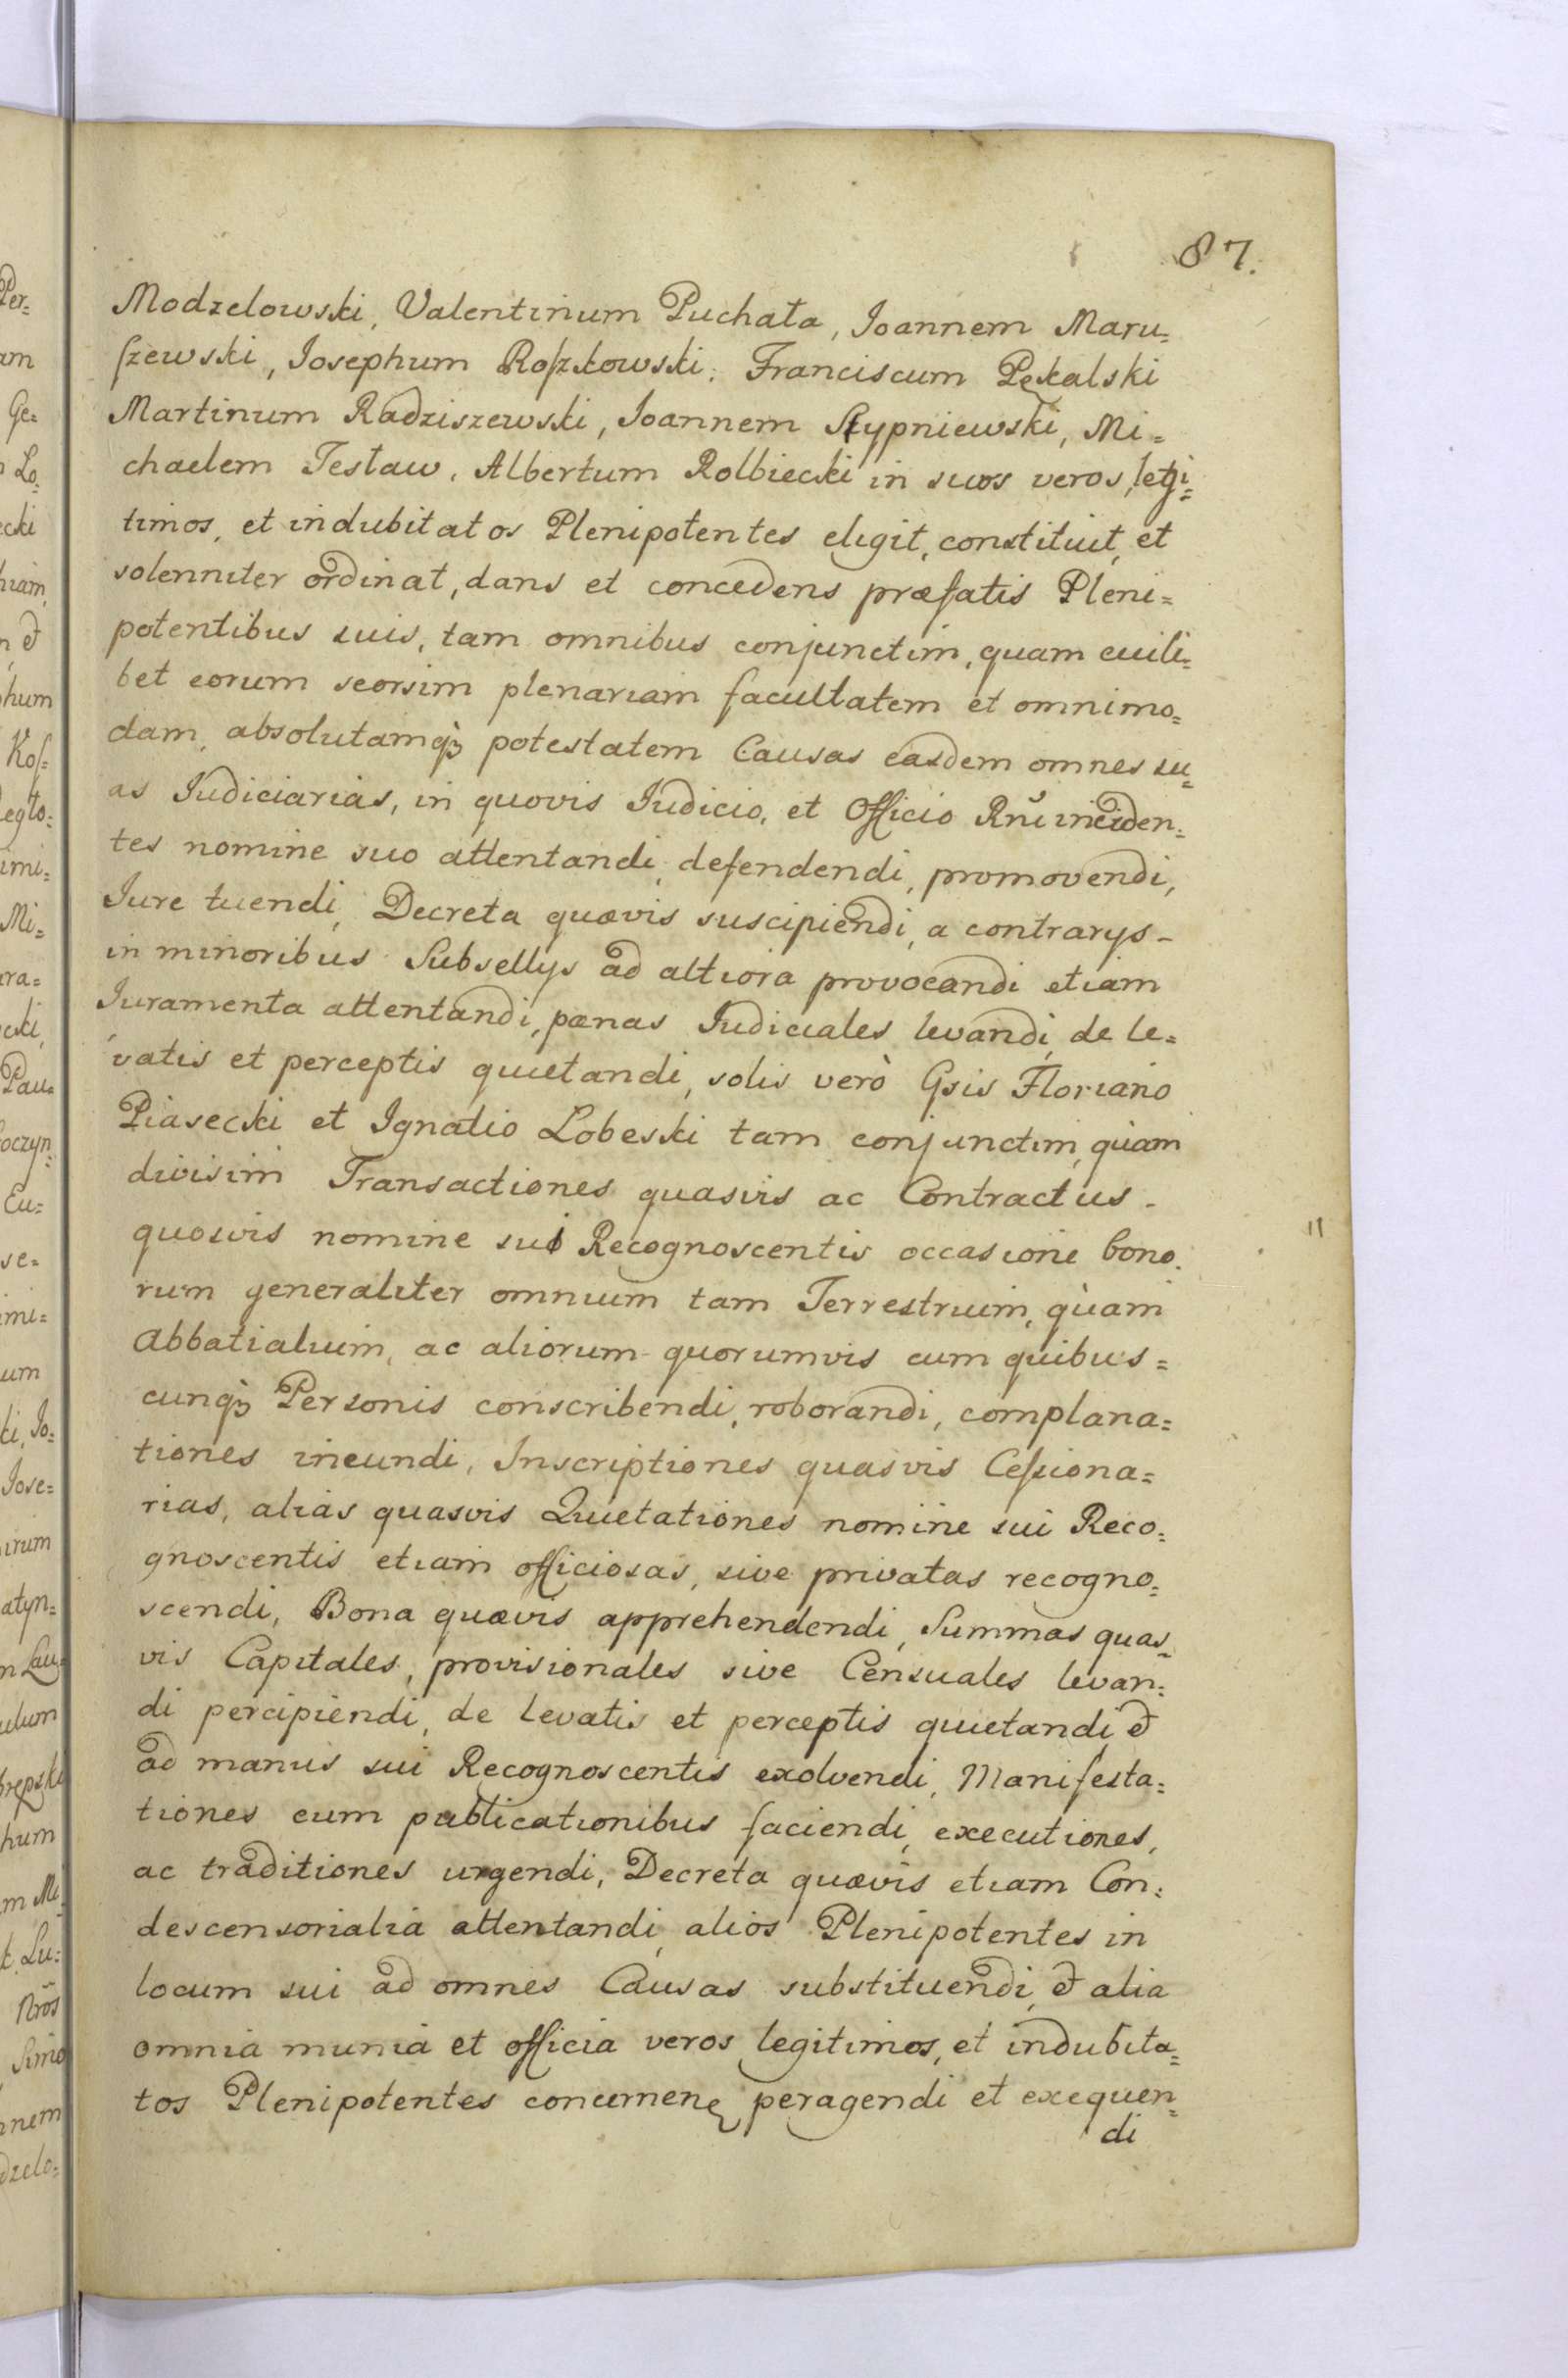 87.
Modzelowski, Valentinum Puchata, Joannem Maru=
szewski, Josephum Roszkowski, Franciscum Pękalski
Martinum Radziszewski, Joannem Stypniewski, Mi=
chaelem Testaw, Albertum Rolbiecki in suos veros, legi=
timos, et indubitatos Plenipotentes eligit, constituit, et
solenniter ordinat, dans et concedens præfatis Pleni=
potentibus suis, tam omnibus conjunctim, quam cuili=
bet eorum seorsim plenariam facultatem et omnimo=
dam, absolutamqꝫ potestatem Causas easdem omnes su=
as Judiciarias, in quovis Judicio, et Officio Rni inciden=
tes nomine suo attentandi, defendendi, promovendi,
Jure tuendi, Decreta quævis suscipiendi, a contrarys -
in minoribus Subsellys ad altiora provocandi etiam
Juramenta attentandi, pænas Judiciales levandi, de le=
vatis et perceptis quietandi, solis verò Gsis Floriano
Piasecki et Ignatio Lobeski tam conjunctim, quam
divisim Transactiones quasvis ac Contractus -
quosvis nomine sui Recognoscentis occasione bono=
rum generaliter omnium tam Terrestrium, quam
Abbatialium, ac aliorum quorumvis cum quibus=
cunqꝫ Personis conscribendi, roborandi, complana=
tiones ineundi, Inscriptiones quasvis Cessiona=
rias, alias quasvis Quietationes nomine sui Reco=
gnoscentis etiam officiosas, sive privatas recogno=
scendi, Bona quævis apprehendendi, Summas quas=
vis Capitales, provisionales sive Censuales levan=
di percipiendi, de levatis et perceptis quietandi et
ad manus sui Recognoscentis exolvendi, Manifesta=
tiones cum publicationibus faciendi, executiones,
ac traditiones urgendi, Decreta quævis etiam Con=
descensorialia attentandi, alios Plenipotentes in
locum sui ad omnes Causas substituendi, et alia
omnia munia et officia veros legitimos, et indubita=
tos Plenipotentes concernenę peragendi et exequen=
di